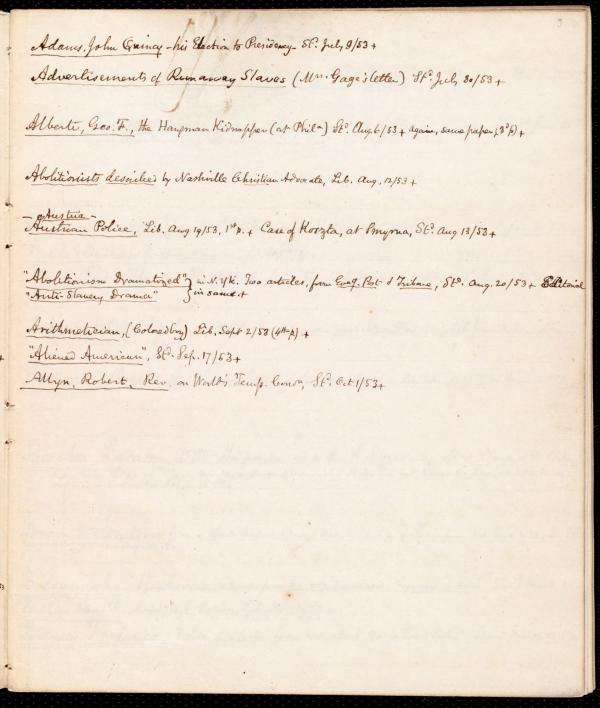 Adams, John Quincy - his Election to Presidency - Sd. July 9/53 +
Advertisements of Runaway Slaves (Mrs. Gage's letter) Sd. July 30/53 +
Alberti, Geo. F., the Hangman Kidnapper (at Phila) Sd. Aug 6/53 + again, same paper, (3d p) +
Abolitionists described by Nashville Christian Advocate, Lib. Aug. 12/53 +
- Austria -
Austrian Police, Lib. Aug 19/53, 1st p. + Case of Koszta, at Smyrna, Sd. Aug 13/53 +
"Abolitionism Dramatized" } in N. Yk. Two articles, from Eveg. Post & Tribune, Sd. Aug. 20/53 + Editorial
"Anti-Slavery Drama" } in same. +
Arithmetician, (Colored boy) Lib. Sept 2/53 (4th p) +
"Aliened American", Sd. Sep. 17/53 +
Allyn, Robert, Rev. on World's Temp. Convn, Sd. Oct 1/53 +